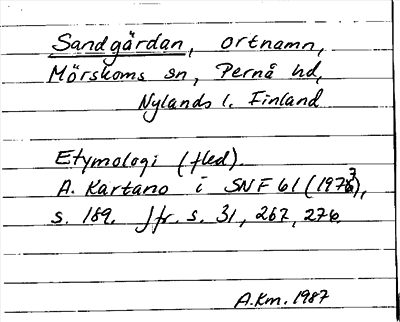 Sandgårdan, ortnamn,
Mörskoms sn, Pernå hd,
Nylands l. Finland
Etymologi (fled).
A. Kartano i SNF 61 (1973),
s. 189. Jfr. s. 31, 267, 276.
A.Km. 1987